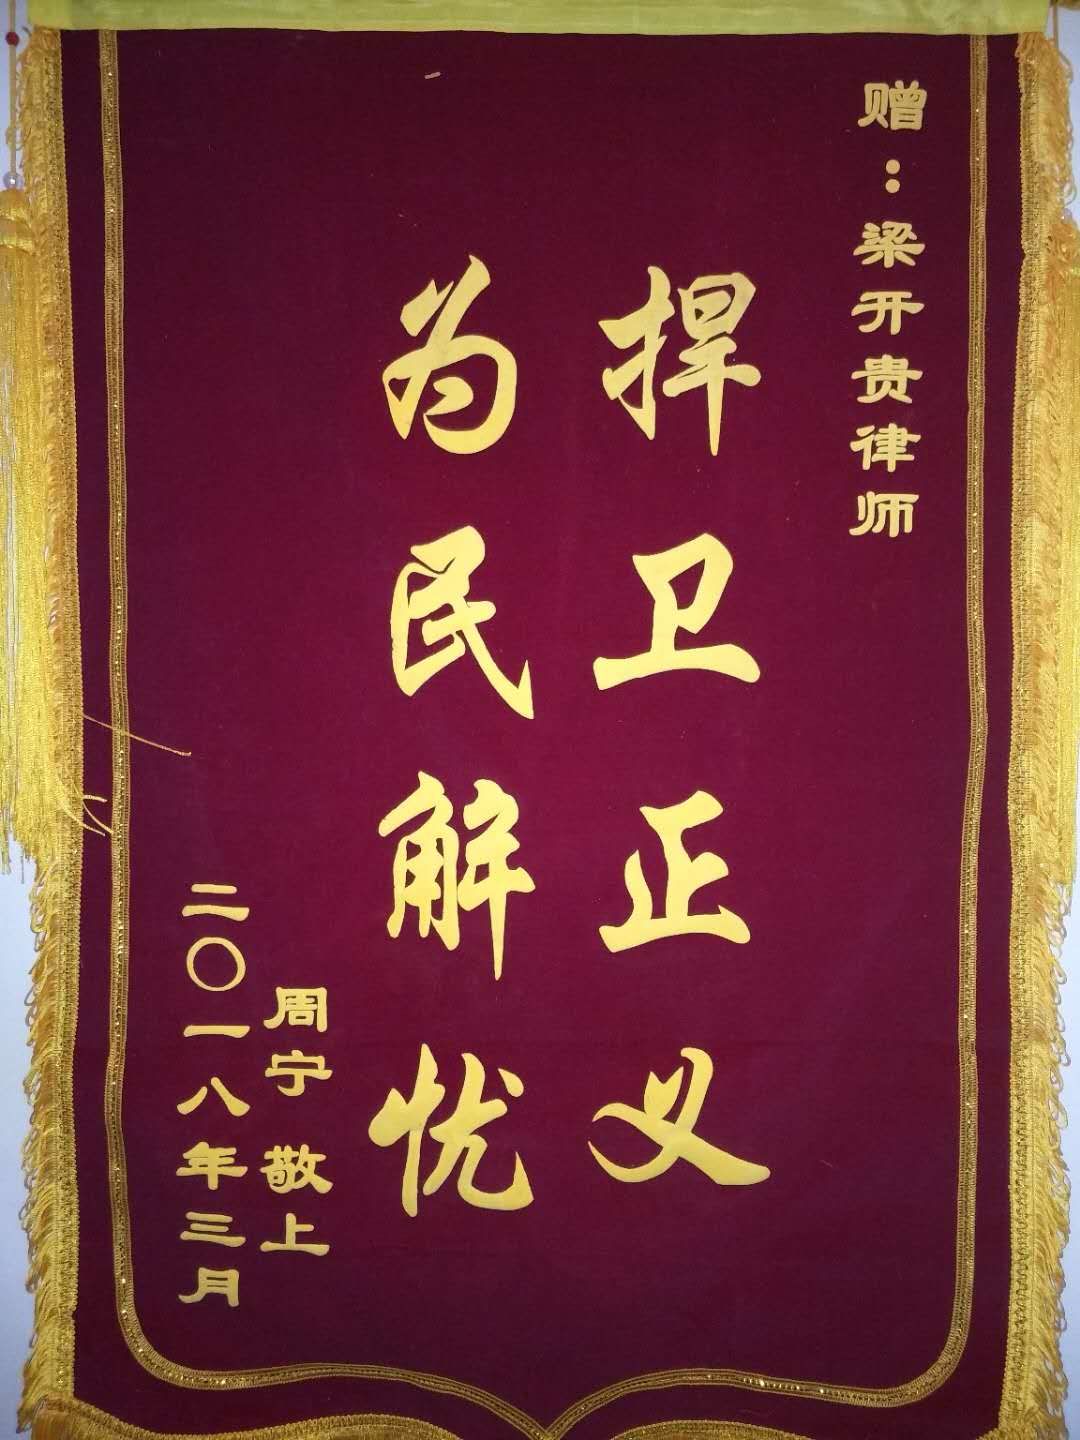 赠：梁开贵律师
捍卫正义
为民解忧
周宁 敬上
二〇一八年三月